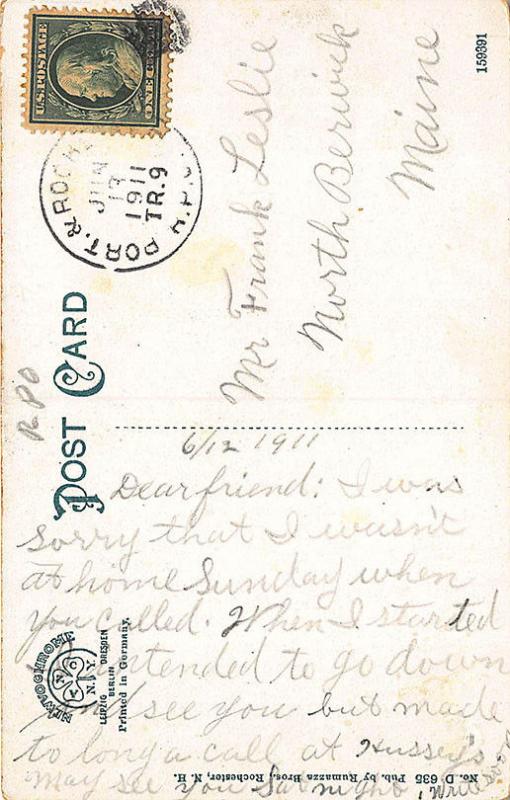 U.S. POSTAGE
ONE CENT
PORT. & ROCH. R.P.O.
JUN
13
1911
TR.9
159391
Mr Frank Leslie
North Berwick
Maine
POST CARD
RPO
6/12 1911
Dear friend: I was
sorry that I wasn't
at home Sunday when
you called. When I started
I intended to go down
and see you but made
to long a call at Hussey's
May see you Sat night, Write
NEWVOCHROME
N.Y.
LEIPZIG DRESDEN
BERLIN
Printed in Germany.
No. D 635 Pub. by Rumazza Bros., Rochester, N. H.